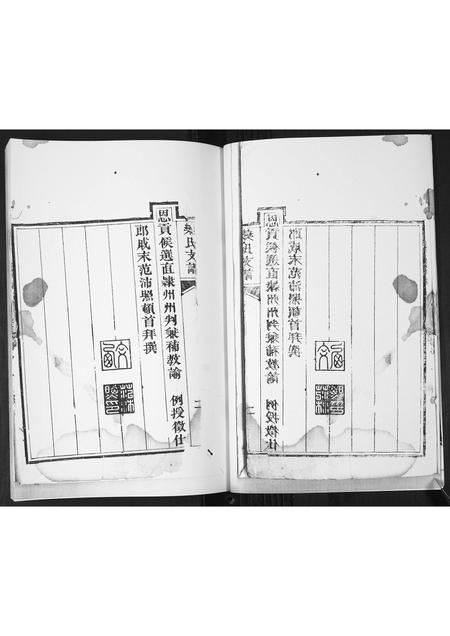 恩貢候選直隸州州判兼補教諭 例授徵仕
郎戚末范沛熙頓首拜撰
恩貢候選直隸州州判兼補教諭 例授徵仕
郎戚末范沛熙頓首拜撰
氏支譜